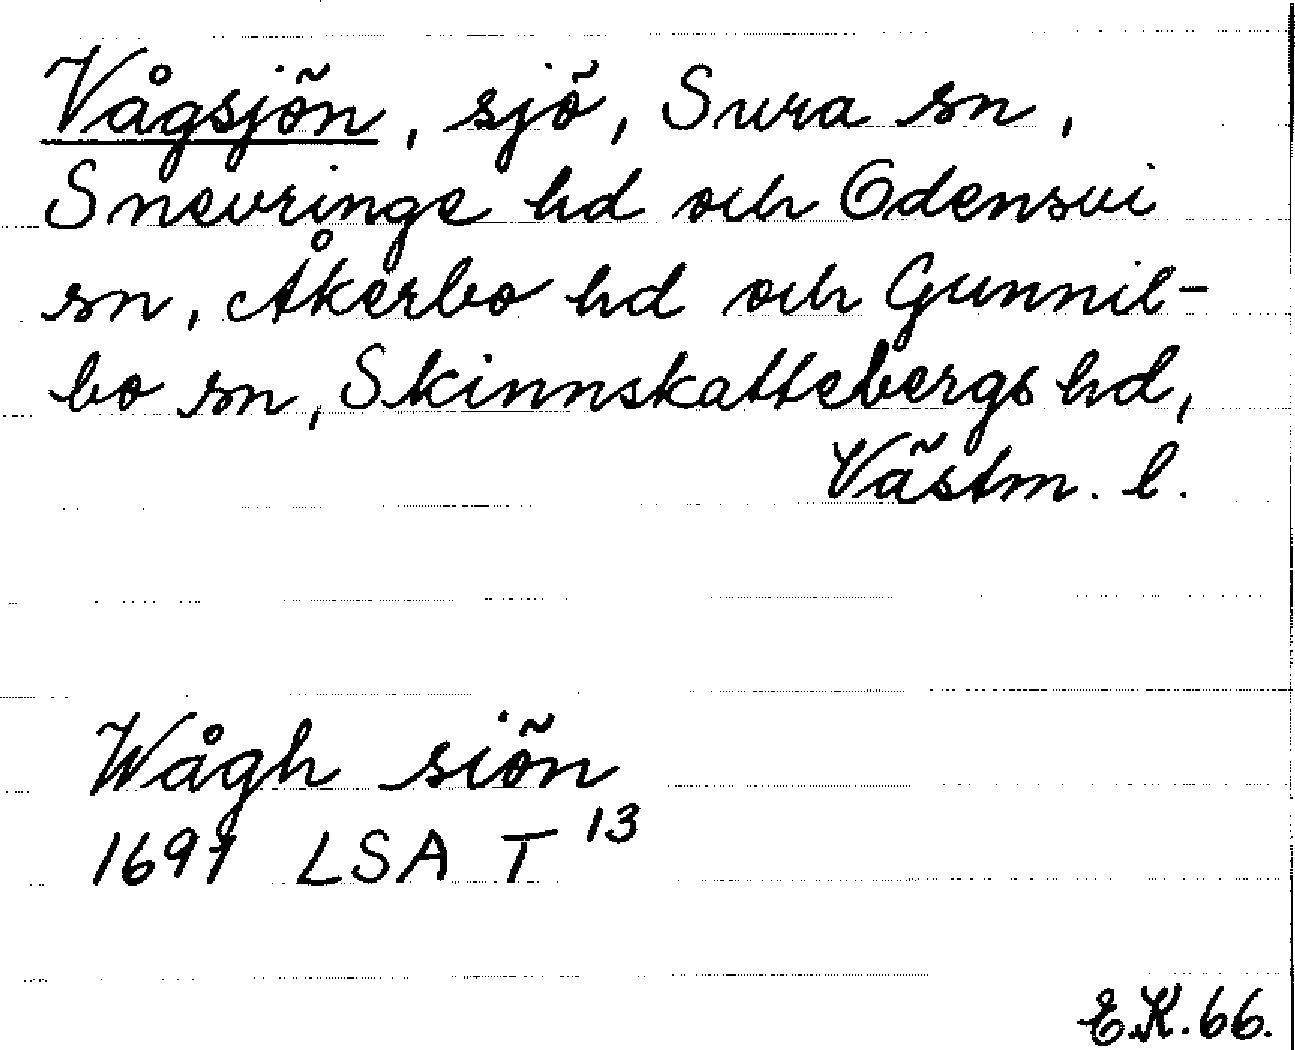 Vågsjön, sjö, Sura sn,
Snevringe hd och Odensvi
sn, Åkerbo hd och Gunnil-
bo sn, Skinnskattebergs hd,
Västm. l.
Wågh siön
1697 LSA T 13
E.K. 66.